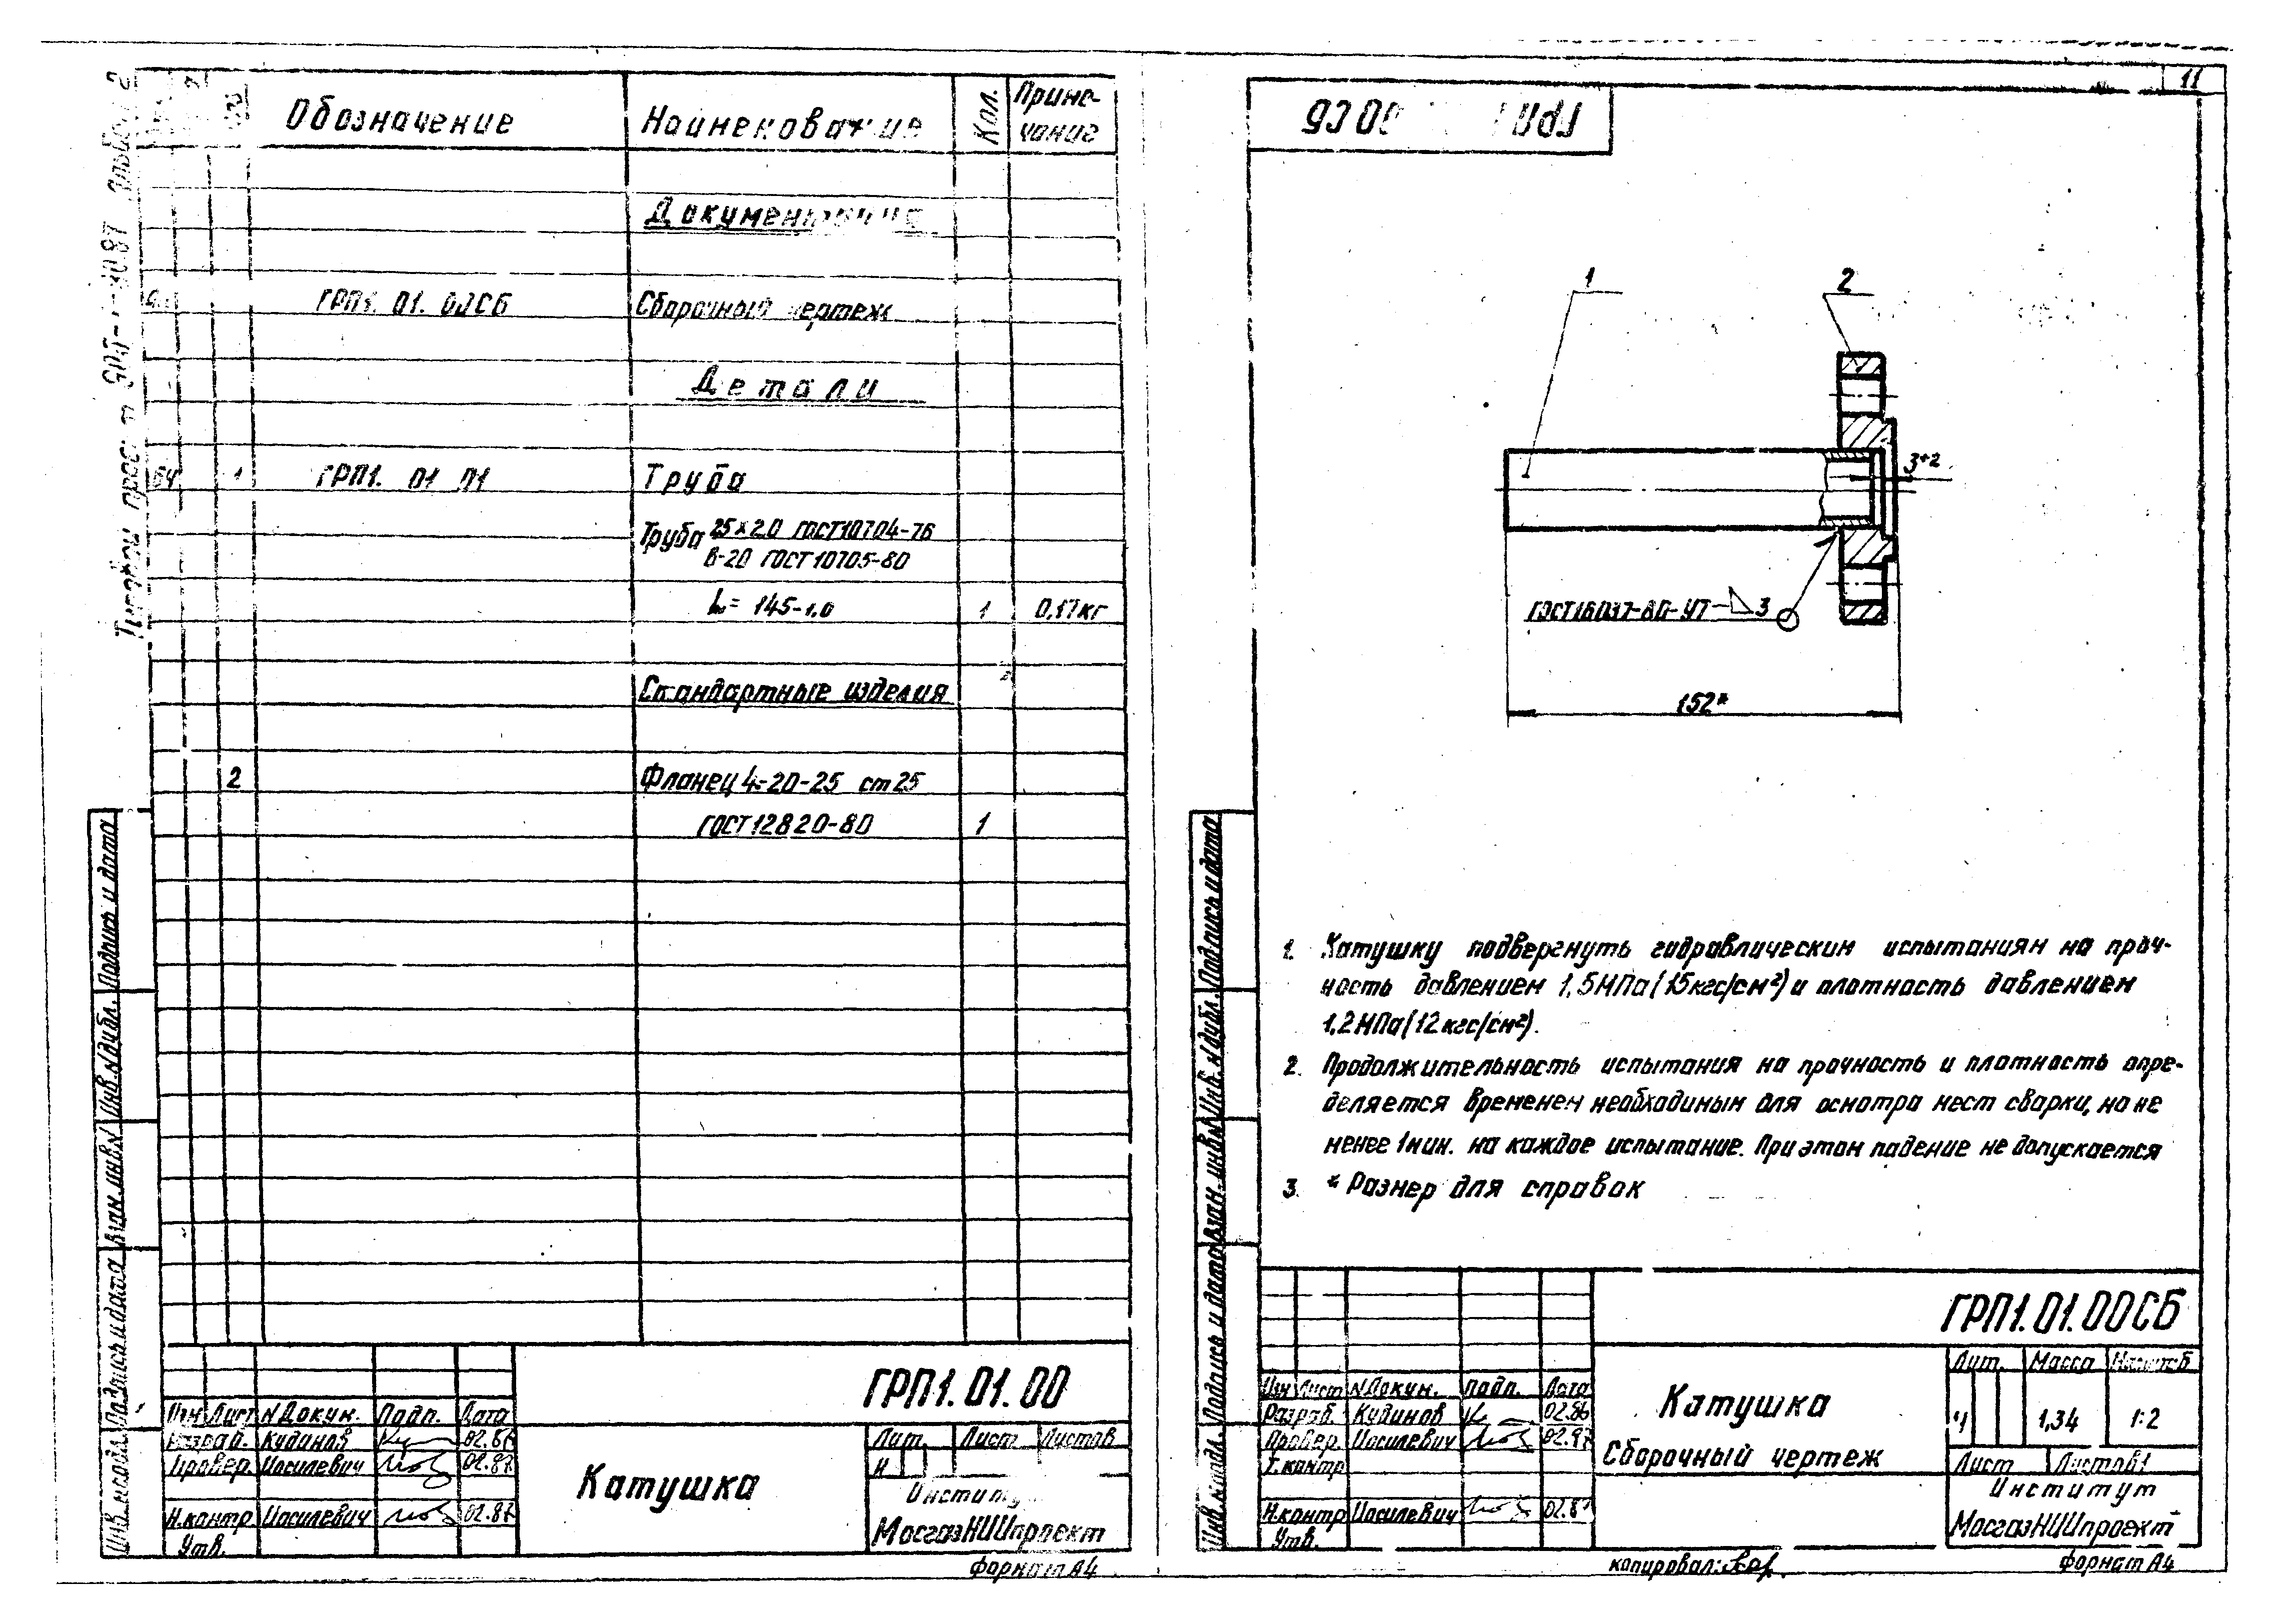 Обозначение
Наименование
Кол.
Приме-
чание
Документация
ГРП1. 01. 00СБ
Сборочный чертеж
Детали
БЧ 1 ГРП1. 01 01 Труба
Труба 25×2.0 ГОСТ10704-76
В-20 ГОСТ10705-80
L= 145-1.0 1 0,17кг
Стандартные изделия
2 Фланец 4-20-25 ст25
ГОСТ12820-80 1
Подпись и дата
Инв.N дубл.
Взам.инв.N
Подпись и дата
Инв.N подл.
ГРП1.01.00
Изм Лист N Докум. Подп. Дата
Разраб. Кудинов
Провер. Иосилевич 02.87
Н.контр. Иосилевич 02.87
Утв.
Катушка
Лит. Лист Листов
И
Институт
МосгазНИИпроект
формат А4
11
ГРП1.01.00СБ
1
2
3+2
ГОСТ16037-80-У7-◺3
152*
1. Катушку подвергнуть гидравлическим испытаниям на проч-
ность давлением 1,5МПа(15кгс/см²) и плотность давлением
1,2МПа(12кгс/см²).
2. Продолжительность испытания на прочность и плотность опре-
деляется временем необходимым для осмотра мест сварки, но не
менее 1мин. на каждое испытание. При этом падение не допускается
3. * Размер для справок
Подпись и дата
Инв.N дубл.
Взам.инв.N
Подпись и дата
Инв.N подл.
ГРП1.01.00СБ
Изм Лист N Докум. Подп. Дата
Разраб. Кудинов 02.86
Провер. Иосилевич
Т.контр
Н.контр Иосилевич
Утв.
Катушка
Сборочный чертеж
Лит. Масса Масштаб
1,34 1:2
Лист Листов1
Институт
МосгазНИИпроект
копировал:
формат А4